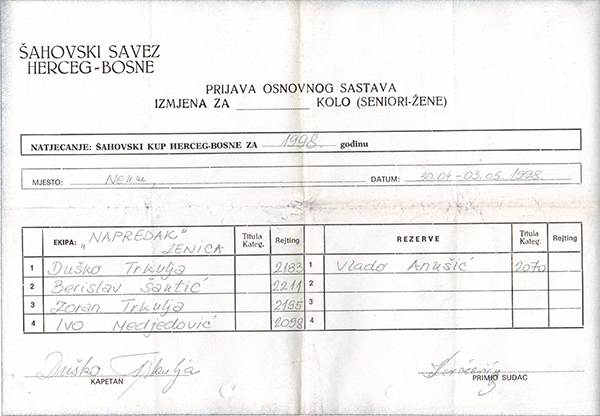 ŠAHOVSKI SAVEZ
HERCEG-BOSNE
PRIJAVA OSNOVNOG SASTAVA
IZMJENA ZA KOLO (SENIORI-ŽENE)
NATJECANJE: ŠAHOVSKI KUP HERCEG-BOSNE ZA 1998. godinu
MJESTO: Neum, DATUM: 30.04-03.05.1998.
EKIPA: "NAPREDAK" ZENICA Titula Kateg. Rejting REZERVE Titula Kateg. Rejting
1 Duško Trkulja 2183 1 Vlado Anušić 2070
2 Berislav Šantić 2211 2
3 Zoran Trkulja 2195 3
4 Ivo Medjedović 2098 4
Duško Trkulja
KAPETAN PRIMIO SUDAC